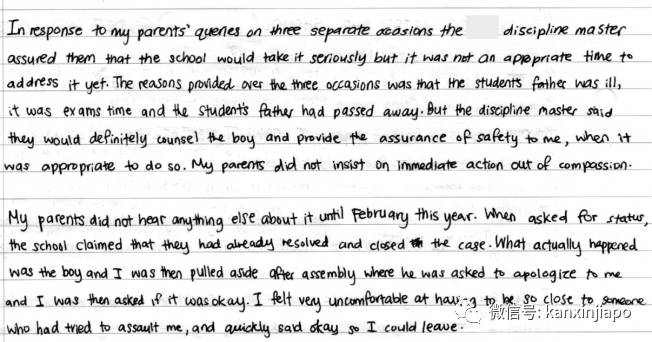 In response to my parents' queries on three separate ocasions the discipline master
assured them that the school would take it seriously but it was not an appropriate time to
address it yet. The reasons provided over the three occasions was that the students father was ill,
it was exams time and the student's father had passed away. But the discipline master said
they would definitely counsel the boy and provide the assurance of safety to me, when it
was appropriate to do so. My parents did not insist on immediate action out of compassion.
My parents did not hear anything else about it until February this year. When asked for status,
the school claimed that they had already resolved and closed the case. What actually happened
was the boy and I was then pulled aside after assembly where he was asked to apologize to me
and I was then asked if it was okay. I felt very uncomfortable at having to be so close to someone
who had tried to assault me, and quickly said okay so I could leave.
微信号: kanxinjiapo